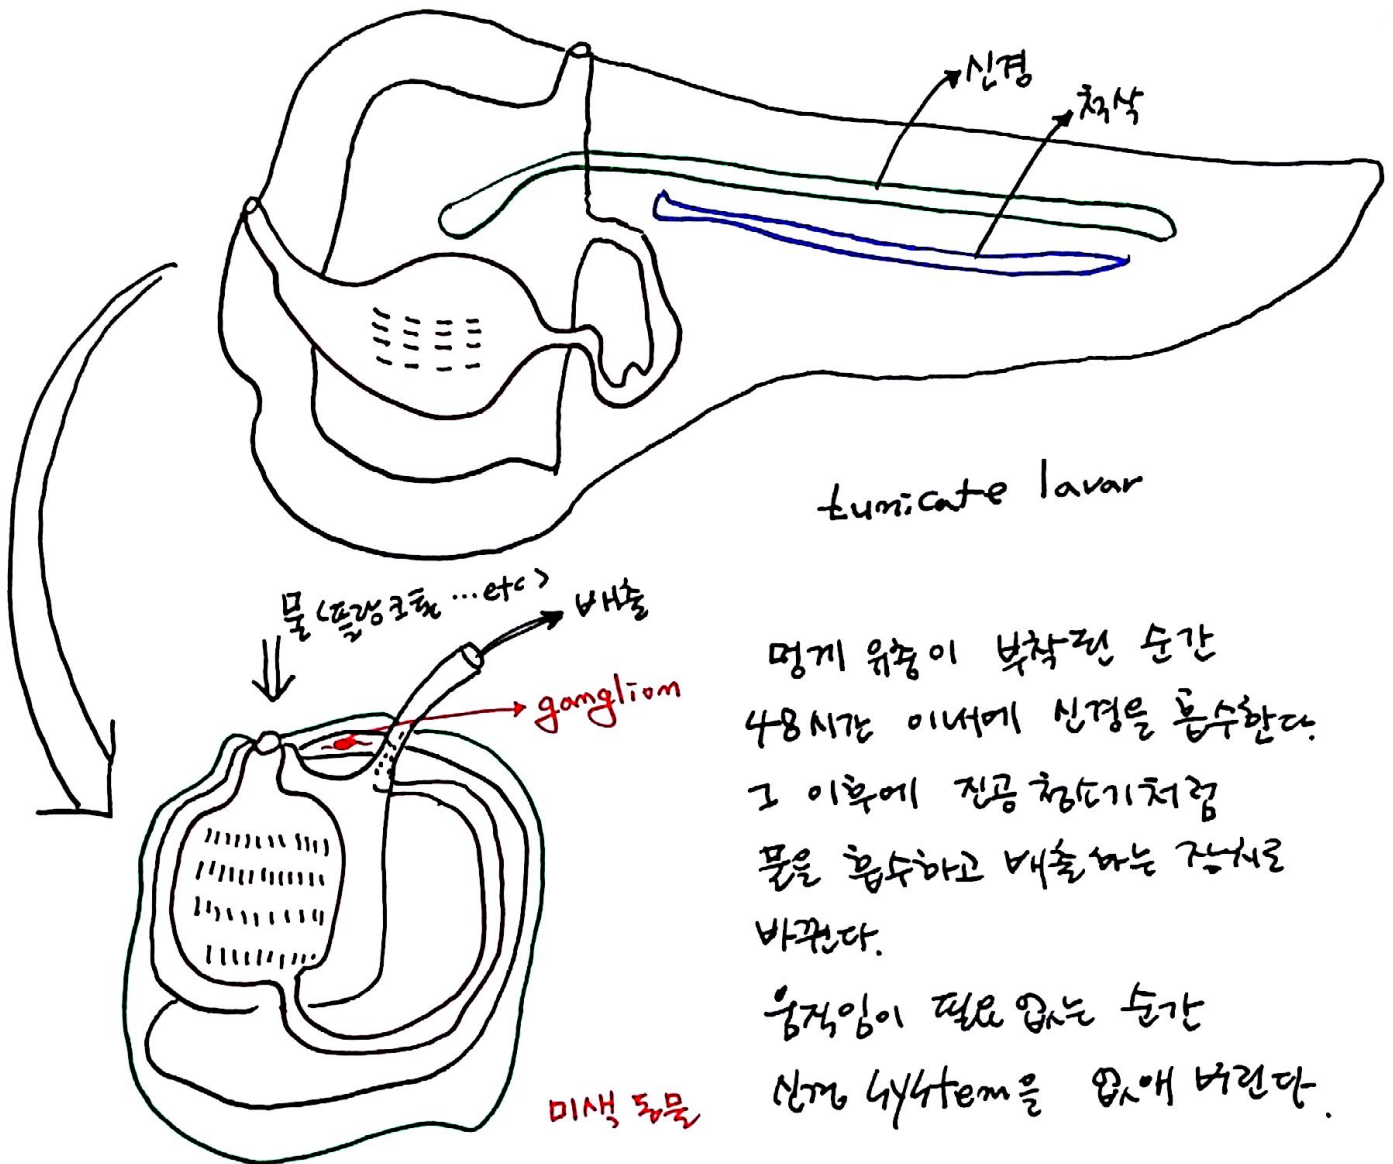 신경
척삭
tunicate lavar
물 (플랑크톤 ...etc)
배출
ganglion
멍게 유충이 부착된 순간
48시간 이내에 신경을 흡수한다.
그 이후에 진공청소기처럼
물을 흡수하고 배출하는 장치로
바뀐다.
움직임이 필요 없는 순간
신경 system을 없애 버린다.
미색 동물